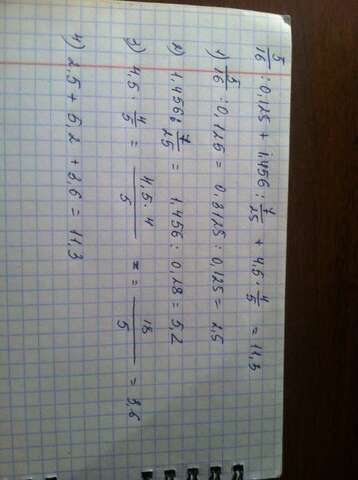 5/16 : 0,125 + 1,456 : 7/25 + 4,5 · 4/5 = 11,3
1) 5/16 : 0,125 = 0,3125 : 0,125 = 2,5
2) 1,456 : 7/25 = 1,456 : 0,28 = 5,2
3) 4,5 · 4/5 = 4,5·4/5 = = 18/5 = 3,6
4) 2,5 + 5,2 + 3,6 = 11,3